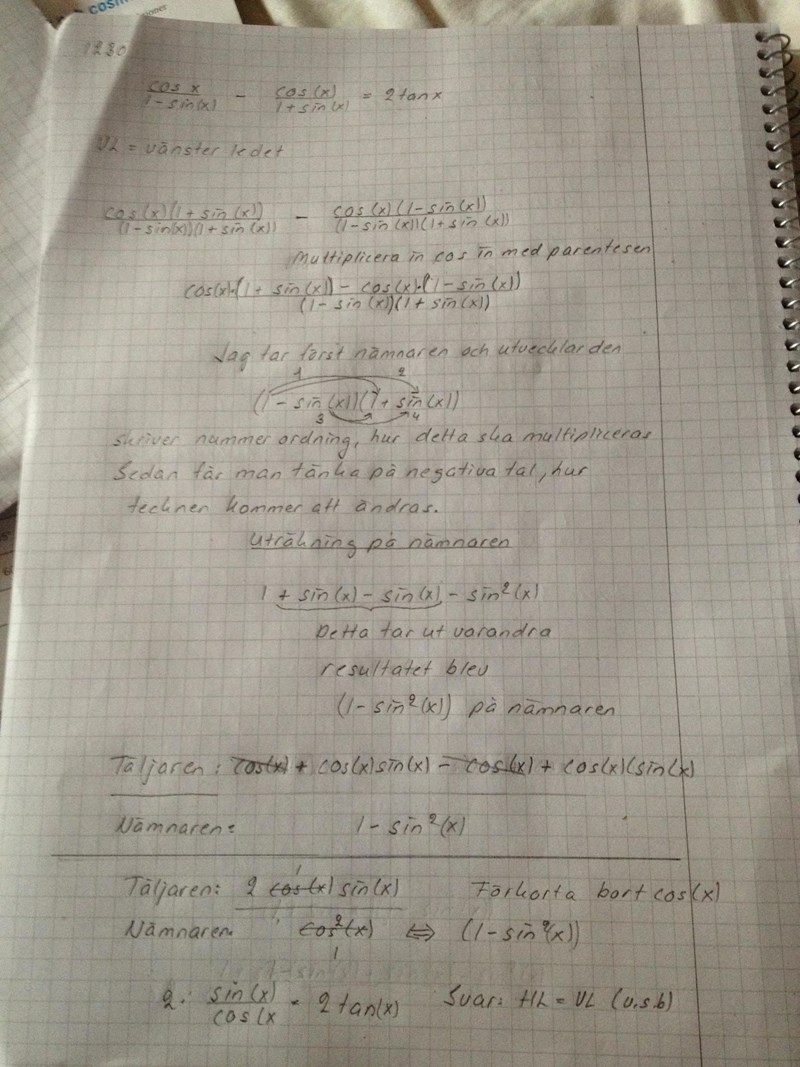 cosin
1230
cos x / 1-sin(x) - cos(x) / 1+sin(x) = 2tanx
VL = vänster ledet
cos(x)(1+sin(x)) / (1-sin(x))(1+sin(x)) - cos(x)(1-sin(x)) / (1-sin(x))(1+sin(x))
Multiplicera in cos in med parentesen
cos(x)·(1+sin(x)) - cos(x)·(1-sin(x)) / (1-sin(x))(1+sin(x))
Jag tar först nämnaren och utvecklar den
1 2
(1-sin(x))(1+sin(x))
3 4
skriver nummer ordning, hur detta ska multipliceras
Sedan får man tänka på negativa tal, hur
tecknen kommer att ändras.
Uträkning på nämnaren
1 + sin(x) - sin(x) - sin²(x)
Detta tar ut varandra
resultatet blev
(1-sin²(x)) på nämnaren
Täljaren: cos(x) + cos(x)sin(x) - cos(x) + cos(x)(sin(x)
Nämnaren: 1-sin²(x)
1
Täljaren: 2 cos(x) sin(x) Förkorta bort cos(x)
Nämnaren cos²(x) ⇔ (1-sin²(x))
1
2· sin(x) / cos(x = 2tan(x) Svar: HL = VL (v.s.b)